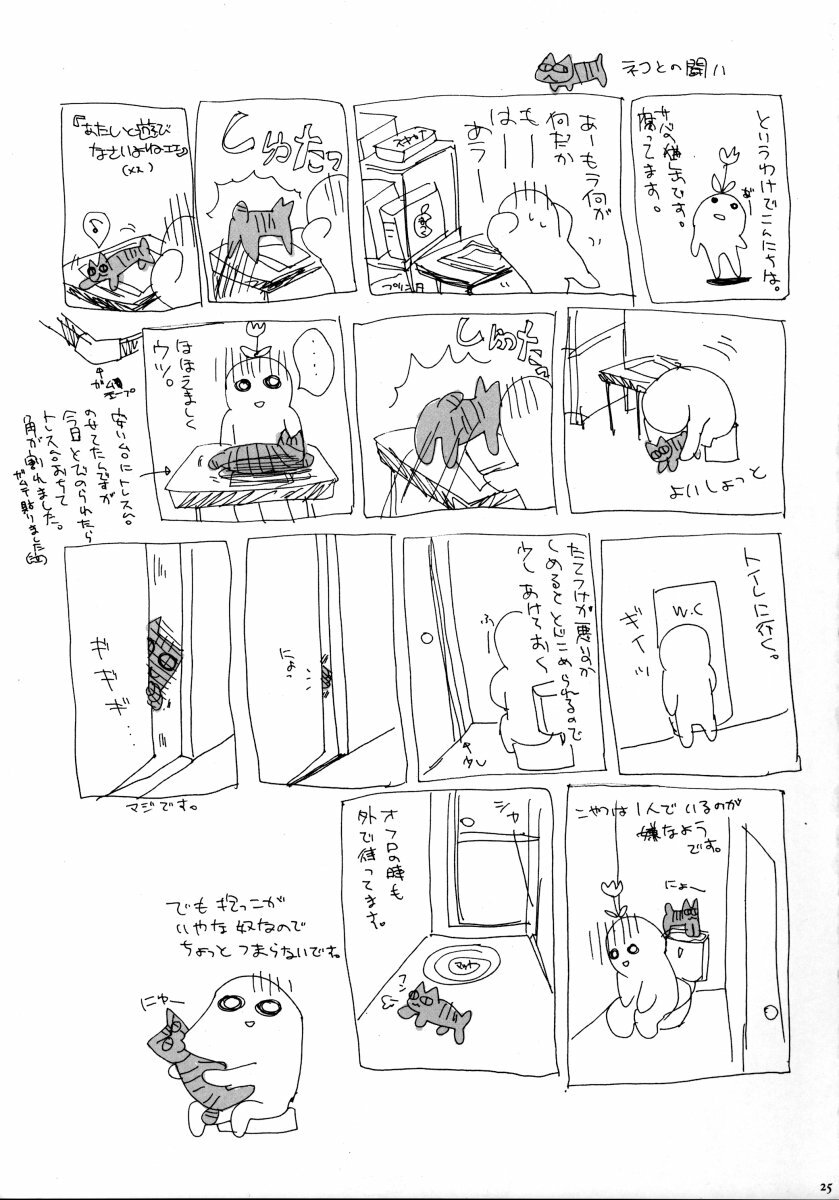 ネコとの闘い
というわけでこんにちは。
腐ってます。
おー
あーもう何がいい
何だか
もー
はー
あうー
スキャナ
プリンタ
しゅたっ
『あたしと遊び
なさいよねェェ』
(メス)
♪
よいしょっと
しゅったっ
……
ほほえましく
ウツ。
ガムテープ
安い台にトレス台
のせてたんですが
今日とびのられたら
トレス台おちて
角が割れました。
ガムテ貼りました(泣)
トイレに行く。
W.C
ギイッ
たてつけが悪いのか
しめるととじこめられるので
少しあけておく
ふー
少し
にょっ
ギギギ…
マジです。
こやつは1人でいるのが
嫌なよう
です。
にょー
シャー
オフロの時も
外で待ってます。
マット
フン
でも抱っこが
いやな奴なので
ちょっとつまらないですね。
にゅー
25